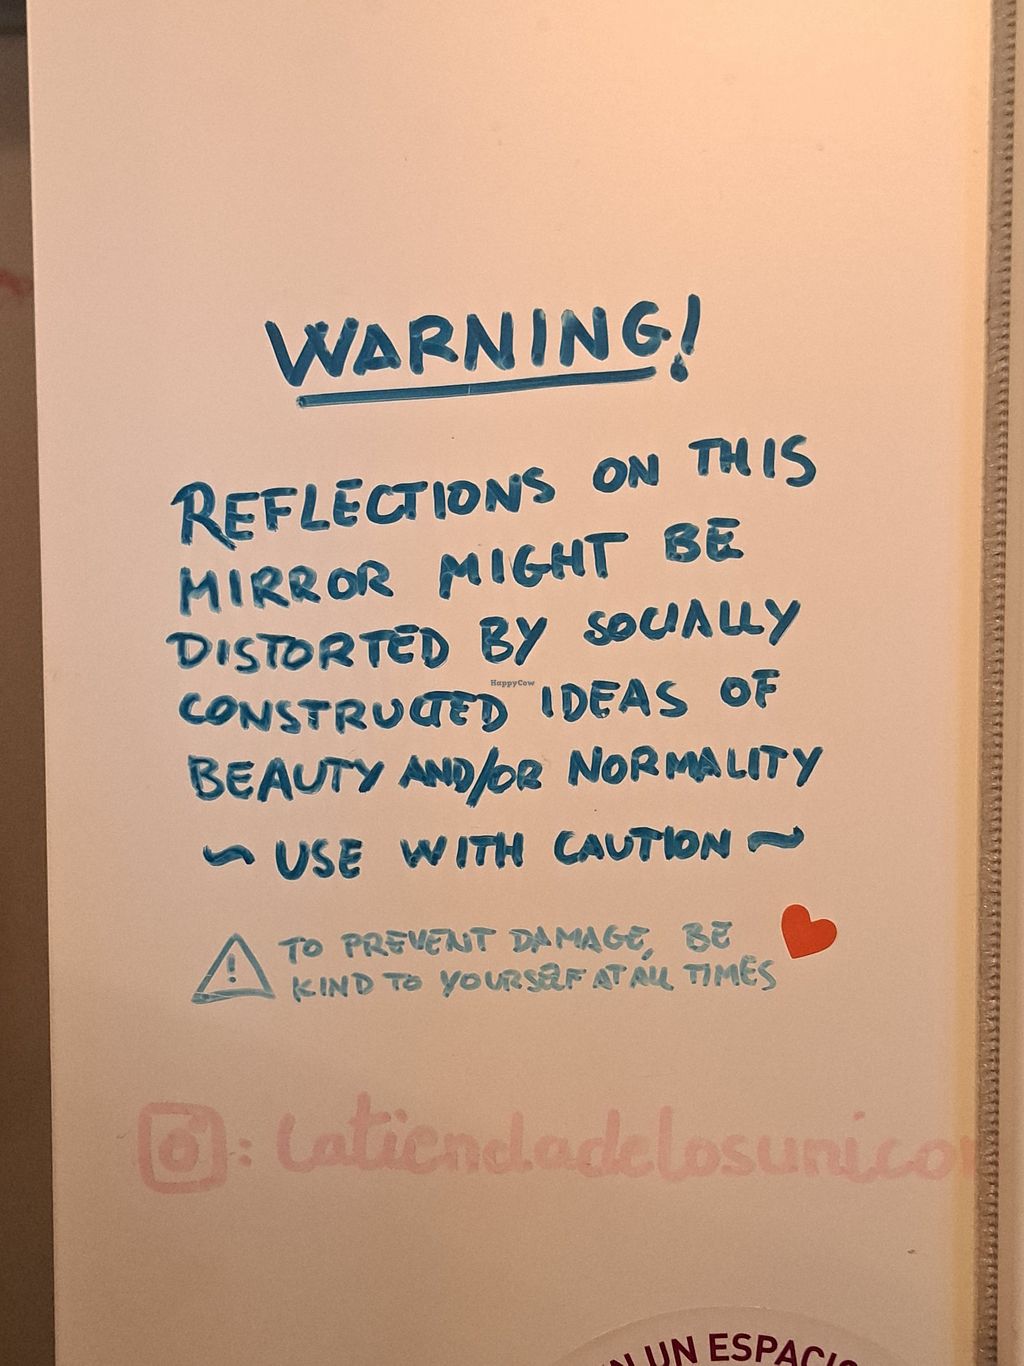 WARNING!
REFLECTIONS ON THIS
MIRROR MIGHT BE
DISTORTED BY SOCIALLY
CONSTRUCTED IDEAS OF
BEAUTY AND/OR NORMALITY
~ USE WITH CAUTION ~
TO PREVENT DAMAGE, BE
KIND TO YOURSELF AT ALL TIMES
: latiendadelosunicor
UN ESPACIO
HappyCow